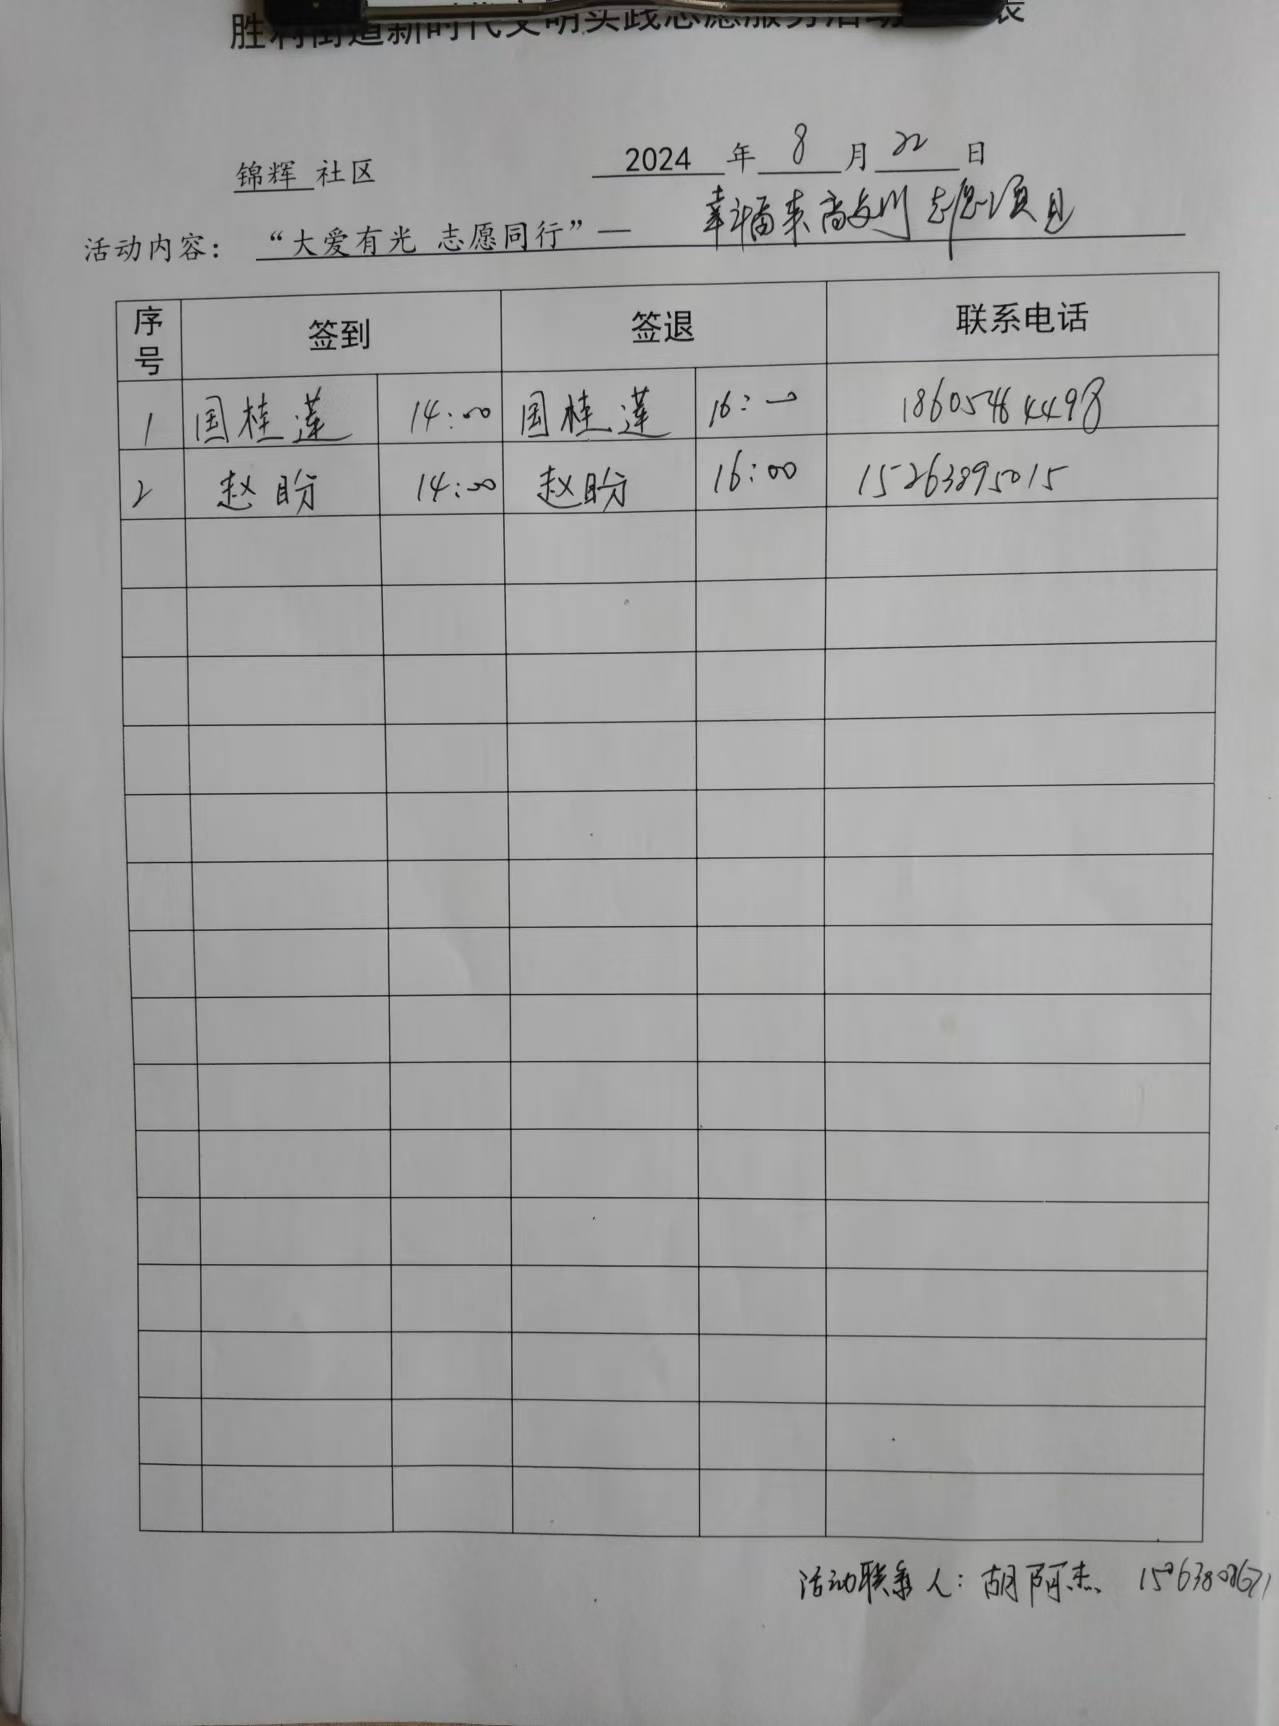 胜利街道新时代文明实践志愿服务活动 表
锦辉 社区 2024 年 8 月 22 日
活动内容： “大爱有光 志愿同行”— 幸福来敲门 志愿项目
序号 签到 签退 联系电话
1 国桂莲 14:00 国桂莲 16:00 18605464498
2 赵盼 14:00 赵盼 16:00 15263895015
活动联系人：胡阿杰